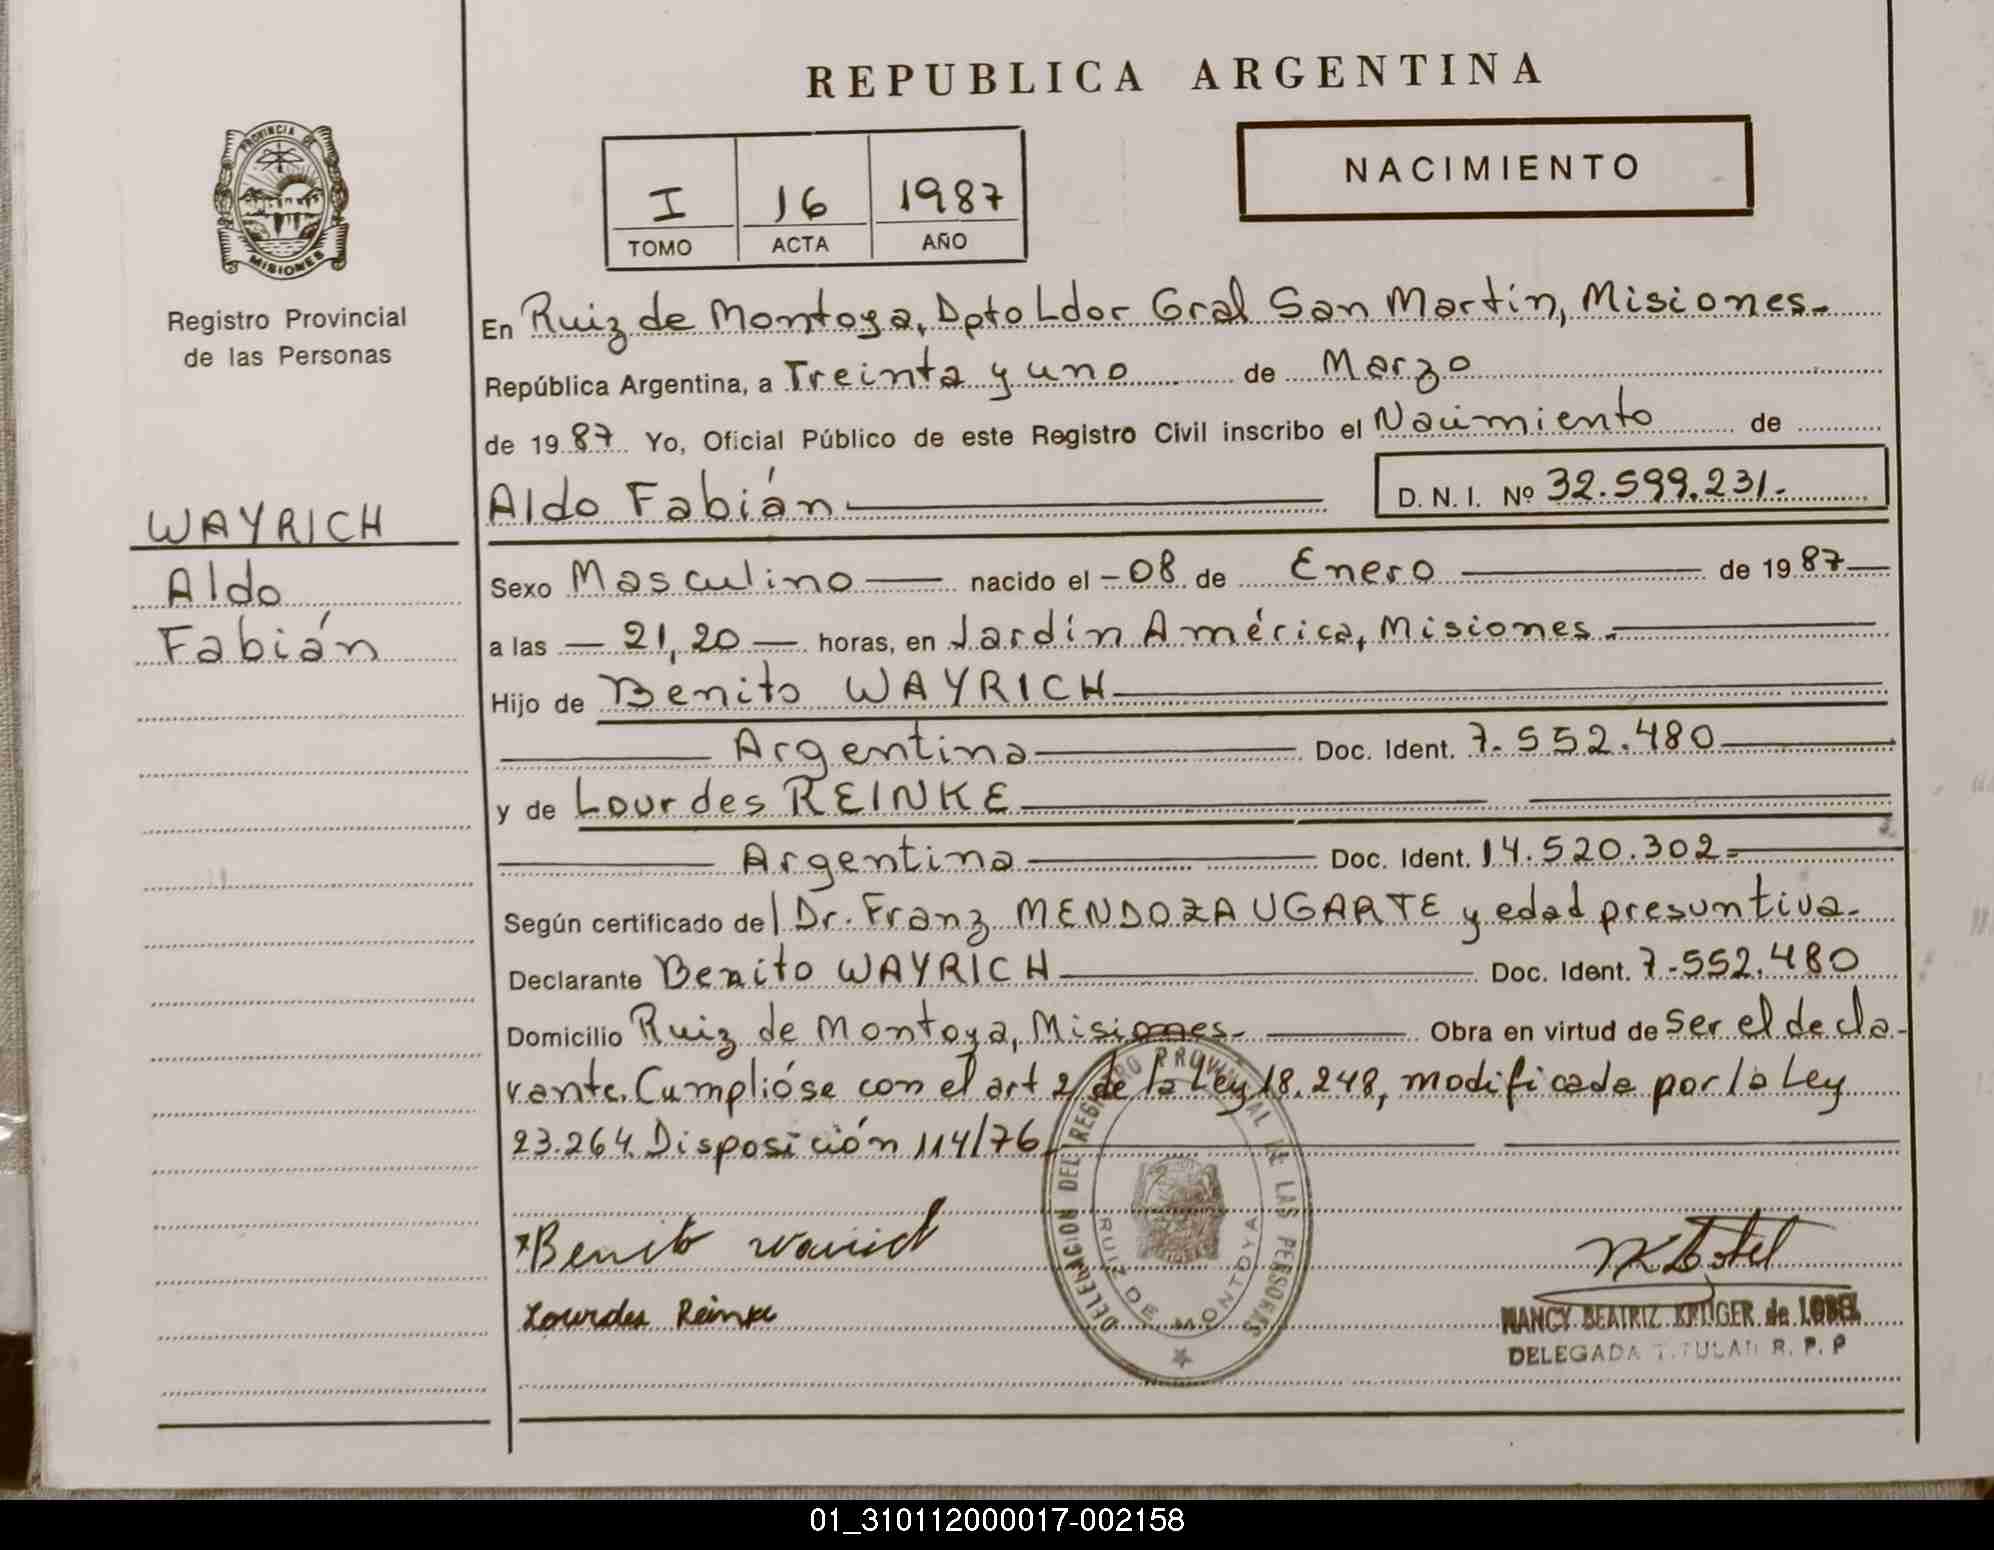 REPUBLICA ARGENTINA
PROVINCIA DE
MISIONES
Registro Provincial
de las Personas
I 16 1987
TOMO ACTA AÑO
NACIMIENTO
WAYRICH
Aldo
Fabián
En Ruiz de Montoya, Dpto Ldor Gral San Martín, Misiones.-
República Argentina, a Treinta y uno de Marzo
de 19 87 Yo, Oficial Público de este Registro Civil inscribo el Nacimiento de
Aldo Fabián D. N. I. Nº 32.599.231.-
Sexo Masculino nacido el -08 de Enero de 19 87
a las - 21,20 - horas, en Jardín América, Misiones.-
Hijo de Benito WAYRICH
Argentina Doc. Ident. 7.552.480
y de Lourdes REINKE
Argentina Doc. Ident. 14.520.302.-
Según certificado del Dr. Franz MENDOZA UGARTE y edad presuntiva.-
Declarante Benito WAYRICH Doc. Ident. 7.552.480
Domicilio Ruiz de Montoya, Misiones.- Obra en virtud de Ser el decla-
rante. Cumplióse con el art 2 de la Ley 18.248, modificada por la Ley
23.264. Disposición 114/76
Benito
Lourdes Reinke
DELEGACION DEL REGISTRO PROVINCIAL DE LAS PERSONAS
RUIZ DE MONTOYA
NANCY BEATRIZ KRUGER de LOBEL
DELEGADA TITULAR R. P. P
01_310112000017-002158